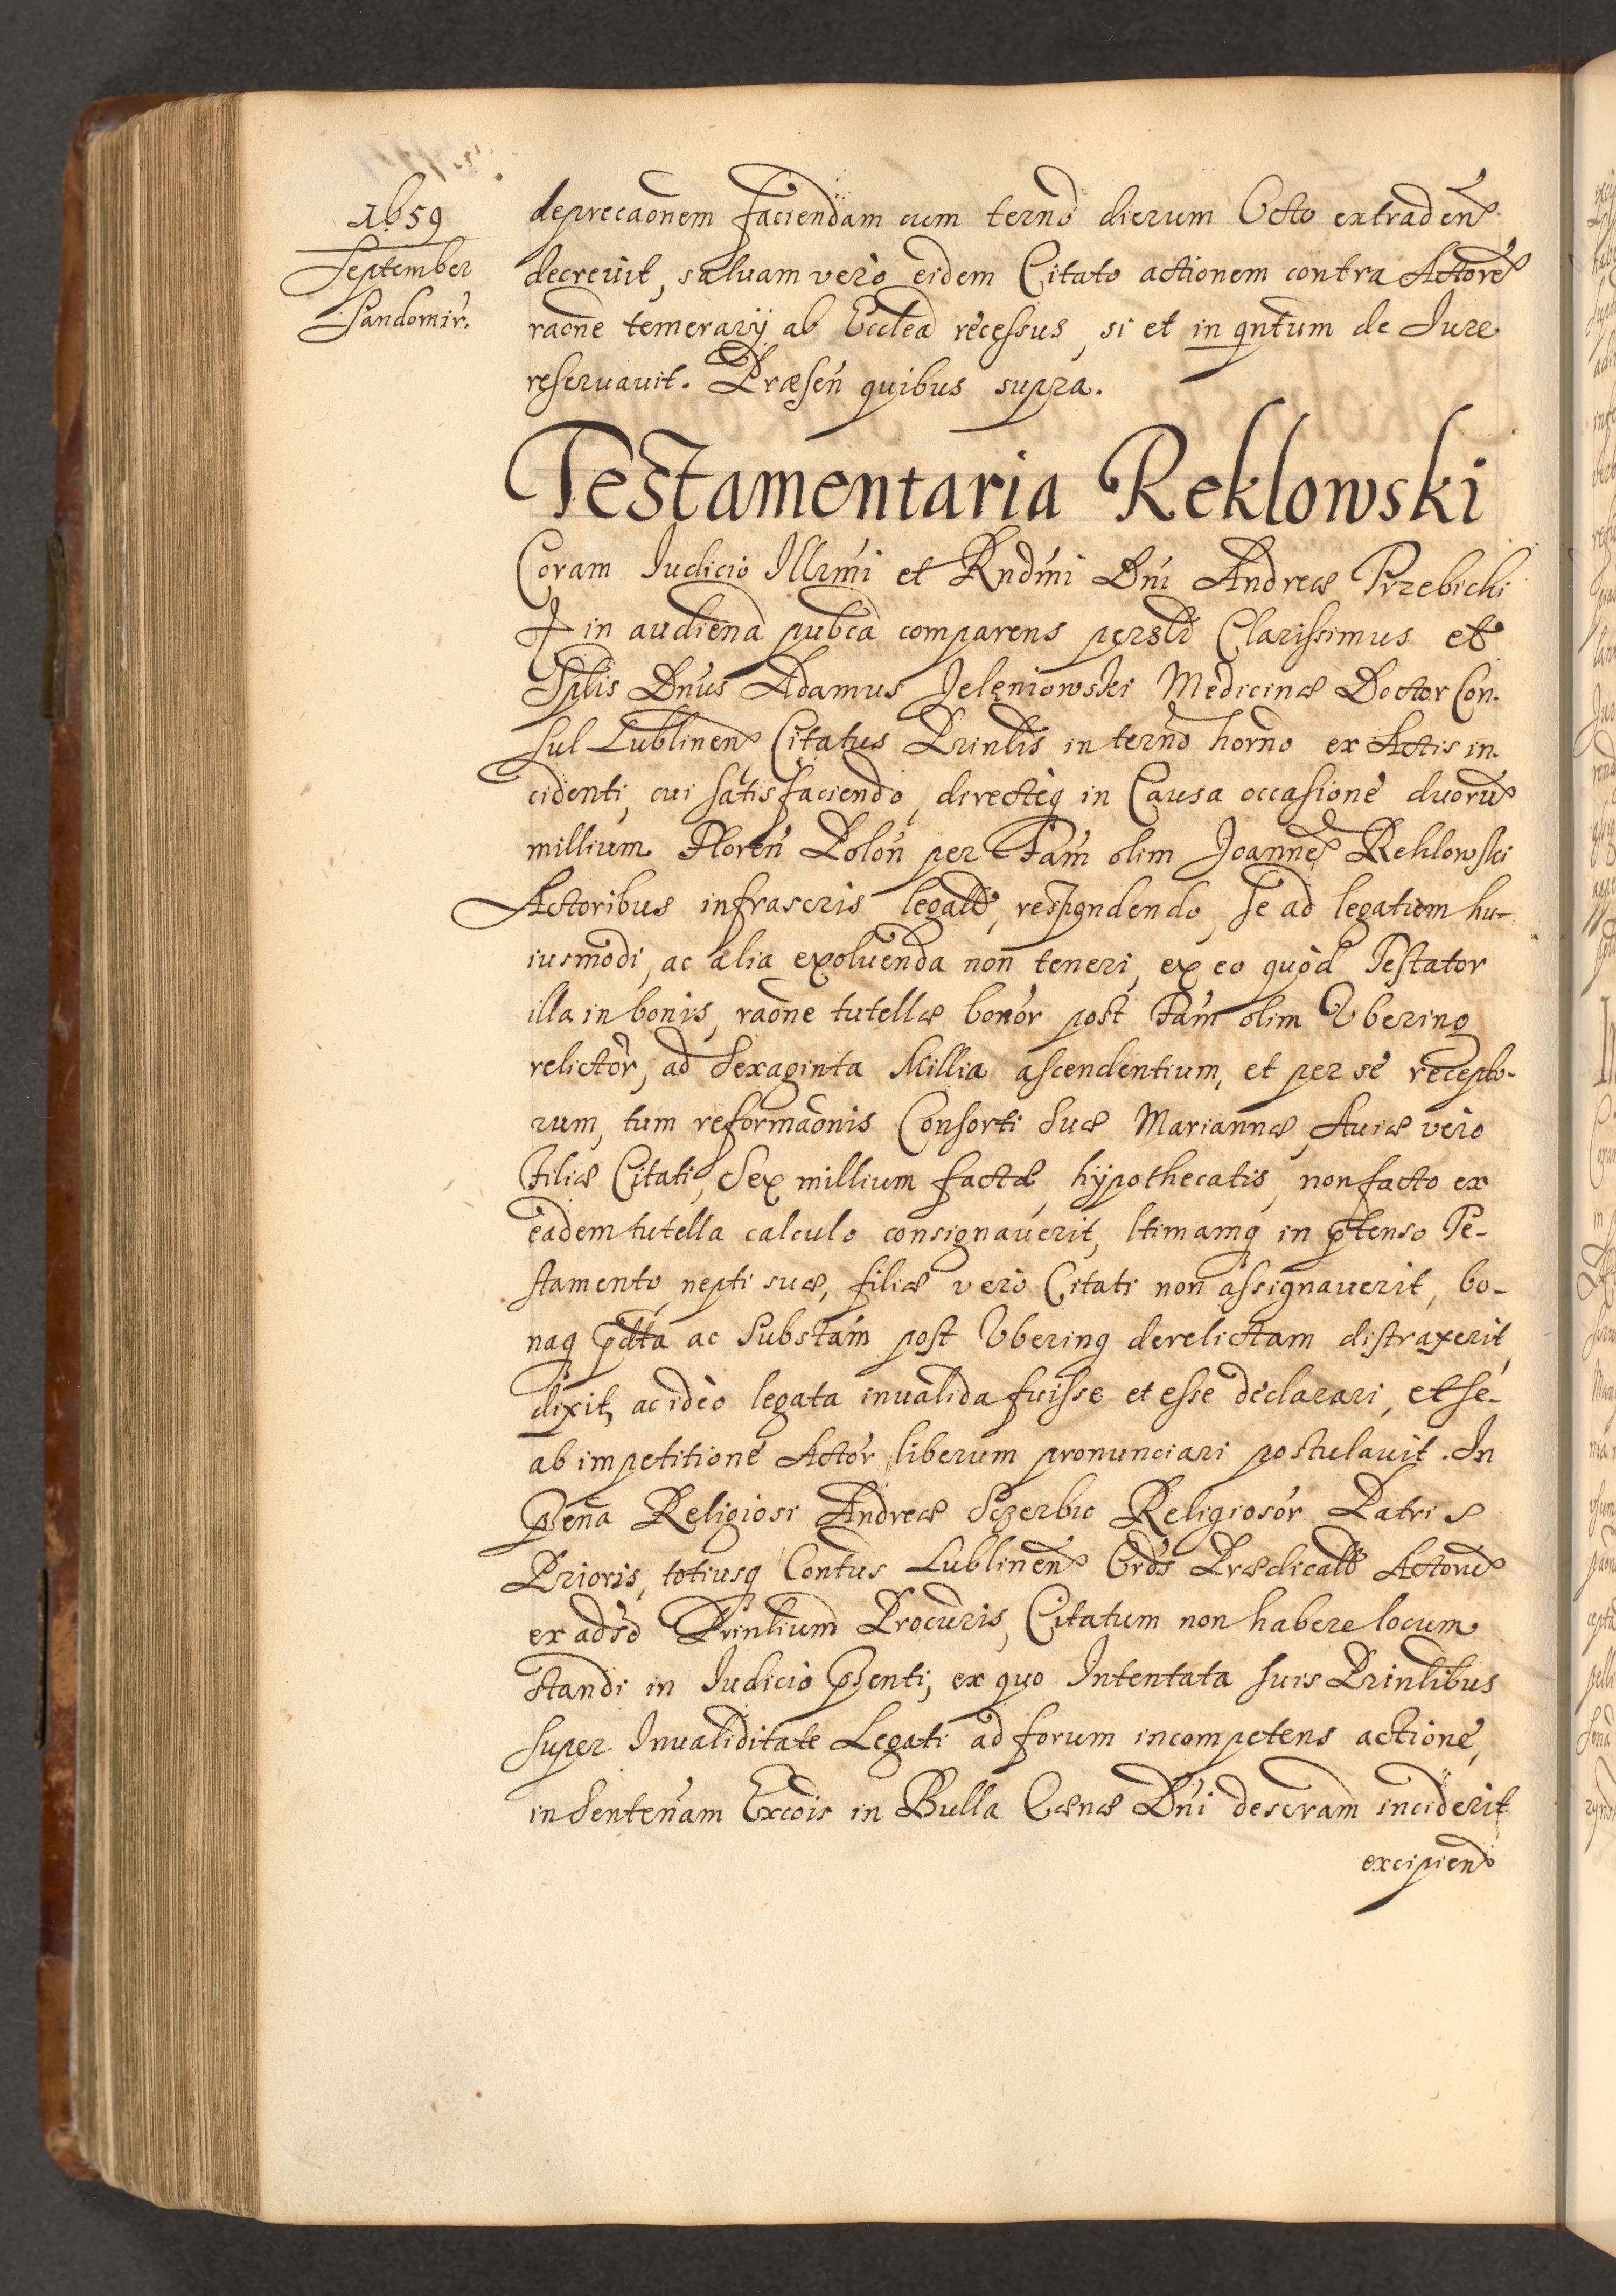 1659
September
Sandomir.
deprecaonem faciendam cum terno dierum Octo extraden
decreuit, saluam vero eidem Citato actionem contra Actore
raone temerarij ab Ecclea recessus, si et in qntum de Iure
reseruauit. Præsen quibus supra.
Testamentaria Reklowski
Coram Iudicio Illrmi et Rndmi Dni Andreæ Trzebicki
in audiena pubca comparens persolr Clarissimus et
Sptlis Dnus Adamus Jeleniowski Medicinæ Doctor Con-
sul Lublinen Citatus Prinlis in terno horno ex Actis in-
cidenti, cui satisfaciendo, directeq in Causa occasione duoru
millium Floren Polon per Fam olim Joanne Reklowski
Actoribus infrascris legat, respondendo, se ad legatum hu-
iusmodi, ac alia exoluenda non teneri, ex eo quod Testator
illa in bonis, raone tutellæ bonor post Fam olim Vbering
relictor, ad Sexaginta Millia ascendentium, et per se recepto-
rum, tum reformaonis Consorti Suæ Mariannæ, Auiæ vero
Filiæ Citati, Sex millium factæ, hypothecatis, non facto ex
eadem tutella calculo consignauerit, ltimamq in ptenso Te-
stamento nepti suæ, filiæ vero Citati non assignauerit, bo-
naq pdta ac Substam post Vbering derelictam distraxerit,
dixit, ac ideo legata inualida fuisse et esse declarari, et se-
ab impetitione Actor liberum pronunciari postulauit. In
psena Religiosi Andreæ Sczerbic Religiosor Patris
Prioris, totiusq Contus Lublinen Ords Prædicat Actoru
ex aduso Prinlium Procuris, Citatum non habere locum
standi in Iudicio psenti, ex quo Intentata suis Prinlibus
super Inualiditate Legati ad forum incompetens actione,
in Sentenam Excois in Bulla Cænæ Dni descram inciderit
excipien